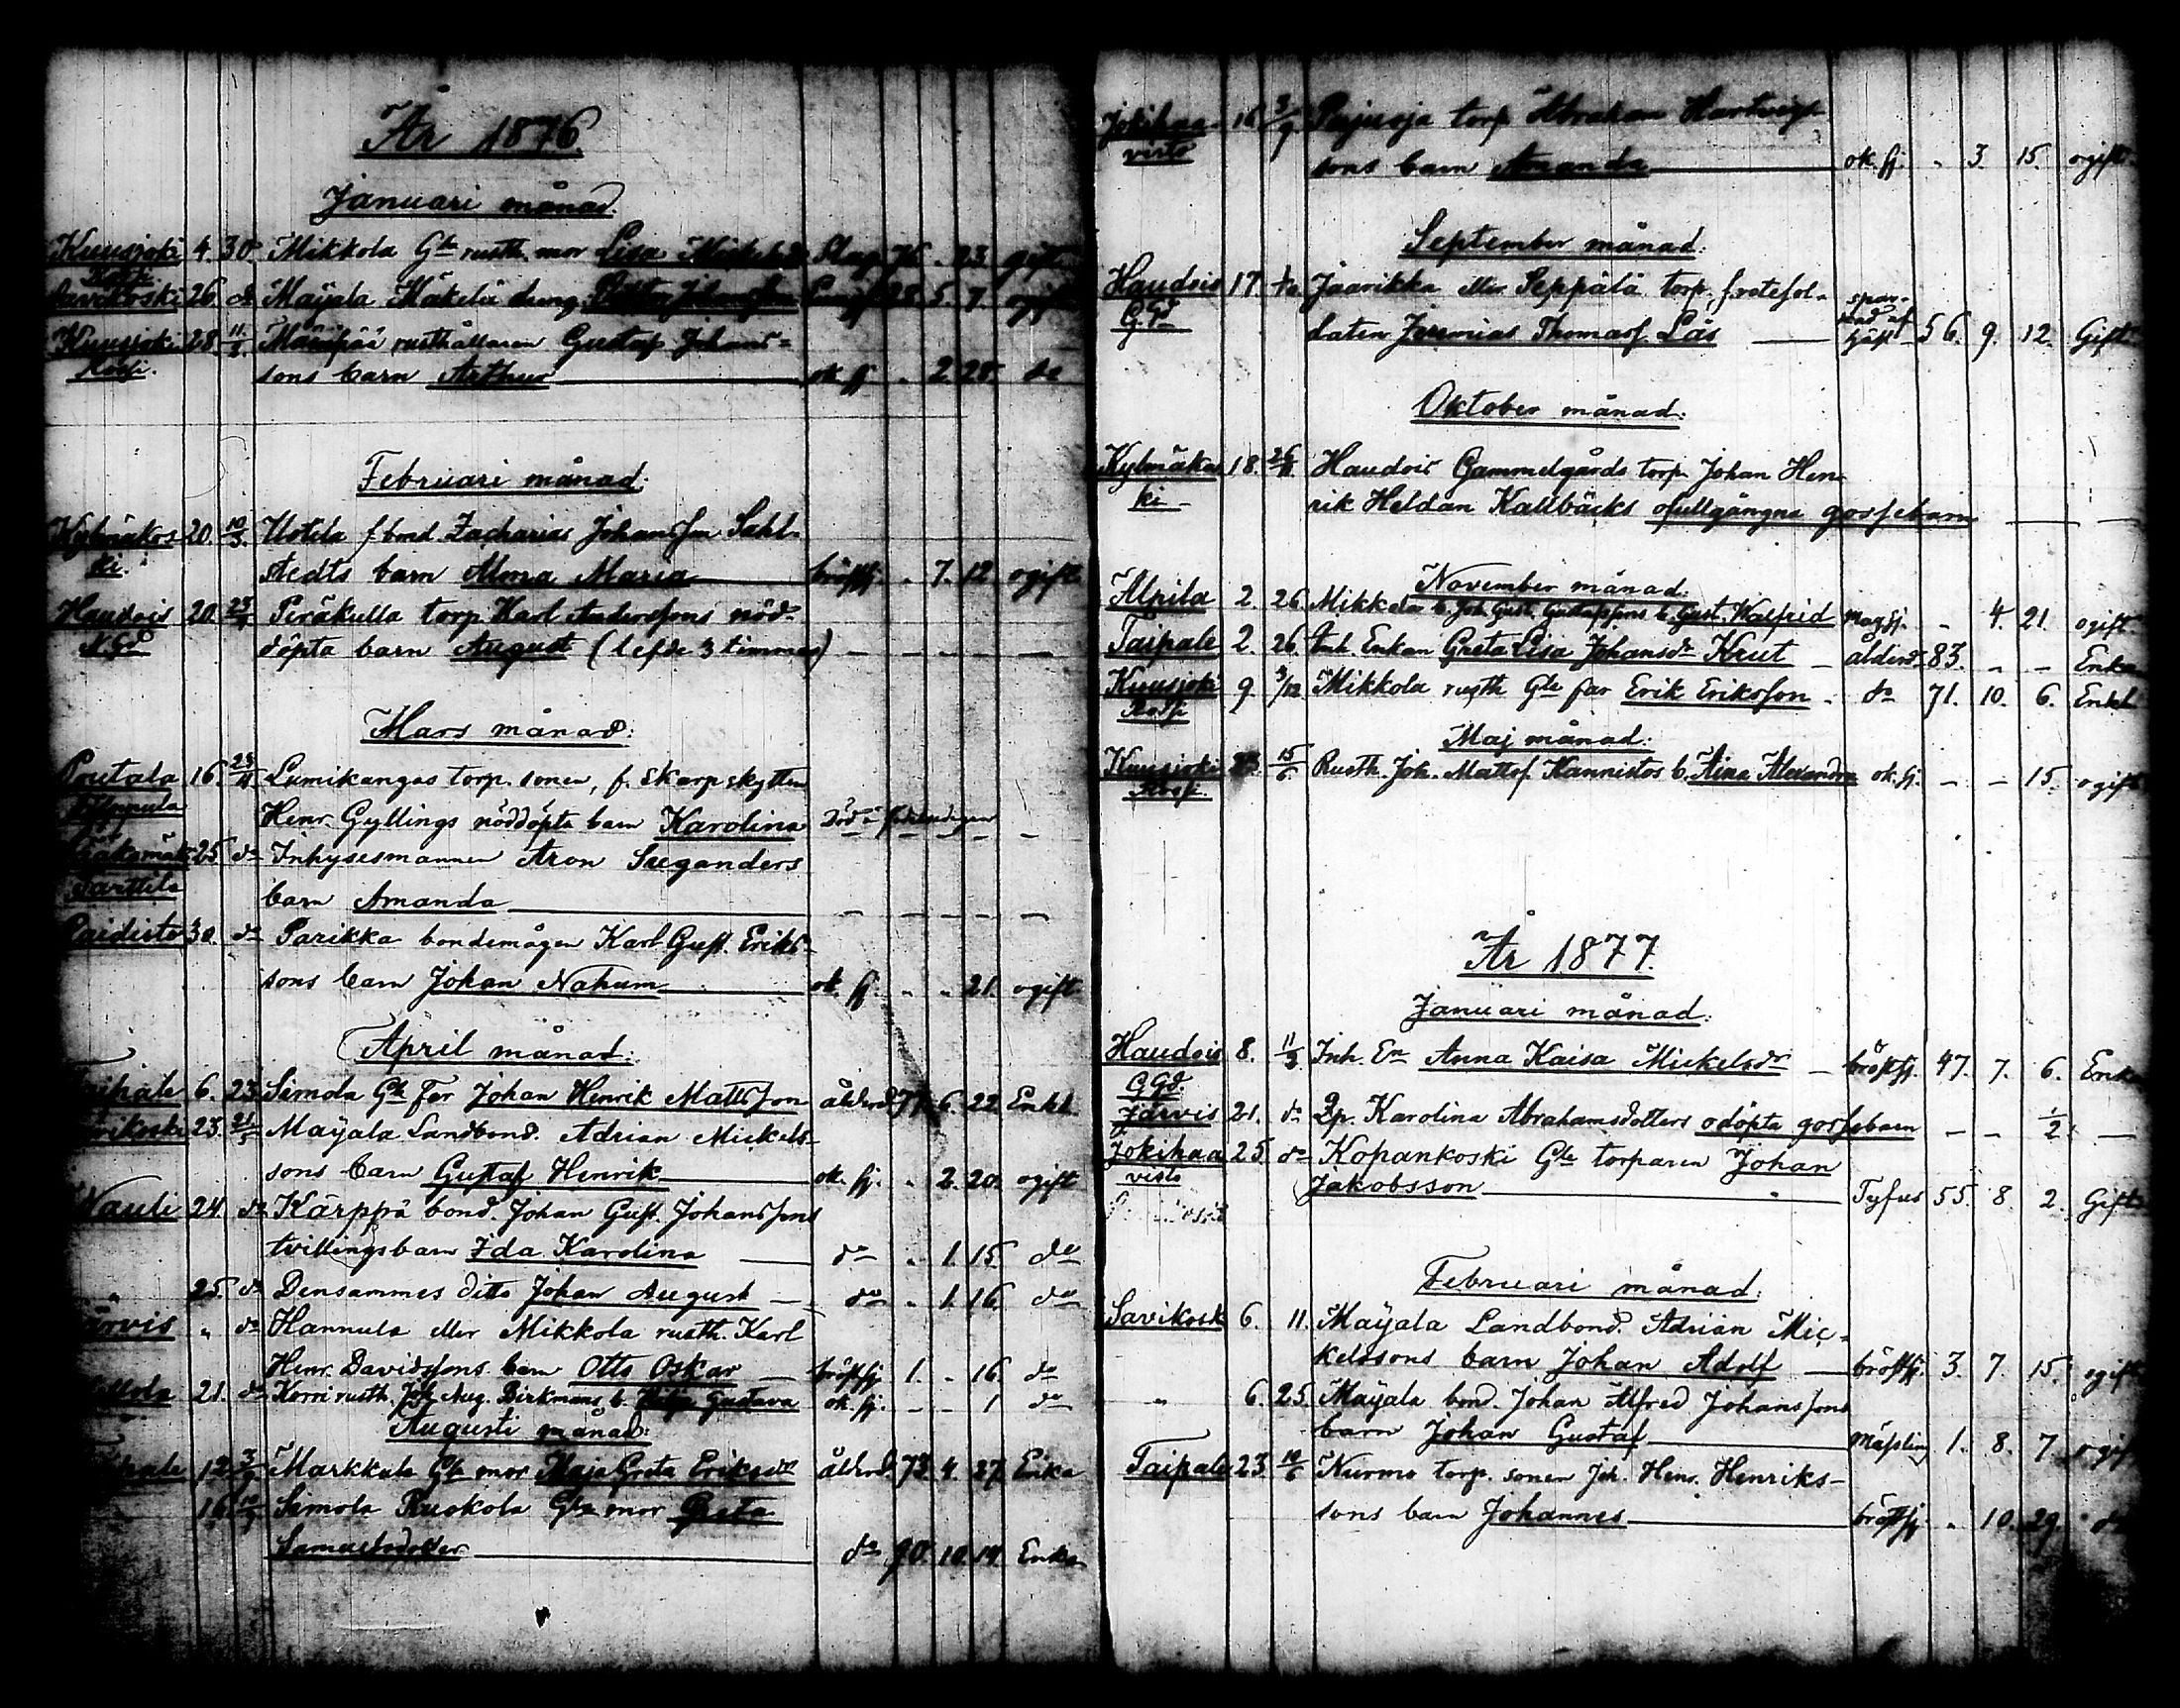 År 1876.
Januari månad.
Kuusjoki 4. 30 Mikkola Gle rusth. mor Lisa Slag 76 - 23 gift
Rossi
Savikoski 26. do Mäyälä Mäkelä dräng 28. 5. 7. ogift
Kuusjoki 28. 11/3. rusthållaren Gustaf Johans-
Rossi. sons barn Arthur ok. sj. „ 2. 28. do
Februari månad.
Kylmäkos 20. 10/3. Uotila f. bond. Zacharias Johansson Sahl-
ki. stedts barn Alma Maria bröstsj. „ 7. 12 ogift
Haudois 20. Peräkulla torp. Karl Anderssons nöd-
N.Gd döpta barn August (lefde 3 timmar) — — — — —
Mars månad.
Poutala 16. Lumikangas torp. sonen, f. Skarpskytten
Henr. Gyllings nöddöpta barn Karolina Död — —
25. do Inhysesmannen Aron Seeganders
Parttila barn Amanda — — — — —
Paidisto 30. do Parikka bondemågen Karl Gust. Eriks-
sons barn Johan Nahum ok. sj. „ „ 21. ogift
April månad.
6. 23 Simola Gle Far Johan Henrik Mattsson ålderd. 77. 6. 22 Enkl.
23. Mäyälä Landbond. Adrian Mickels-
sons barn Gustaf Henrik ok. sj. „ 2. 20. ogift
Nauli 24. do Kärppä bond. Johan Gust. Johanssons
tvillingsbarn Ida Karolina — do „ 1. 15. do
„ 25. do Densammes ditto Johan August — do „ 1. 16. do
Järvis „ do Hannula eller Mikkola rusth. Karl
Henr. Davidssons barn Otto Oskar — bröstsj. 1. „ 16. do
21. do Korri rusth. Joh. Aug. Birkmans b. Gustava ok. sj. — — 1 do
Augusti månad.
12. 3/9 Markkula Gle mor Maja Greta Eriksdr ålderd. 73. 4. 27. Enka
16. Simola Ruokola Gle mor Greta
Samuelsdotter do 90. 10. 14. Enka
Jokihaa- 16. 3/9 Pajuoja torp. Abraham Hartvigs-
visto sons barn Amanda ok. sj. „ 3 15. ogift
September månad.
Haudois 17. Jaarikka eller Seppälä torp. f. rotesol-
G.Gd daten Jeremias Thomass. Läs — af häst 56. 9. 12. Gift
Oktober månad.
Kylmäkos 18. Haudois Gammelgårds torp. Johan Hen-
ki - rik Heldán Kallbäcks ofullgångna gossebarn — —
November månad.
Alpila 2. 26. Mikkola b. Joh. Gust. Gustafssons b. Gust. Walfrid magsj. - 4. 21. ogift
Taipale 2. 26. Inh. Enkan Greta Lisa Johansdr Krut — ålderd. 83. - - Enka
Kuusjoki 9 3/12 Mikkola rusth. Gle far Erik Eriksson - do 71. 10. 6. Enkl.
Rossi
Maj månad.
Kuusjoki 15/6 Rusth. Joh. Mattss. Kannistos b. Aina Alexandra ok. sj. - - 15. ogift
Rossi.
År 1877.
Januari månad.
Haudois 8. 11/3 Inh. En Anna Kaisa Mickelsdr — bröstsj. 47. 7. 6. Enka
G.Gd.
Järvis 21. do Qp. Karolina Abrahamsdotters odöpta gossebarn — — 1/2 —
Jokihaa 25 do Kopankoski Gle torparen Johan
visto Jakobsson Tyfus 55. 8. 2. Gift
Februari månad.
Savikosk 6. 11. Mäyälä Landbond. Adrian Mic-
kelssons barn Johan Adolf — bröstsj. 3. 7. 15. ogift
„ 6. 25. Mäyälä bond. Johan Alfred Johanssons
barn Johan Gustaf Mässling 1. 8. 7. ogift
Taipale 23 Nurmo torp. sonen Joh. Henr. Henriks-
sons barn Johannes bröstsj. „ 10. 29. do